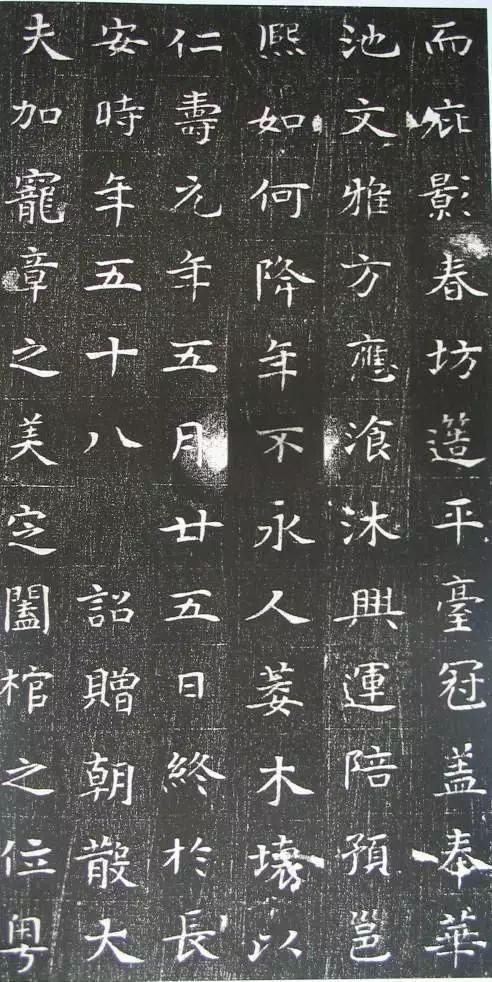 而庇影春坊簉平臺冠盖奉華
池文雅方應湌沐興運陪預邕
熙如何降年不永人萎木壞以
仁壽元年五月廿五日終於長
安時年五十八 詔贈朝散大
夫加寵章之美定闔棺之位粵